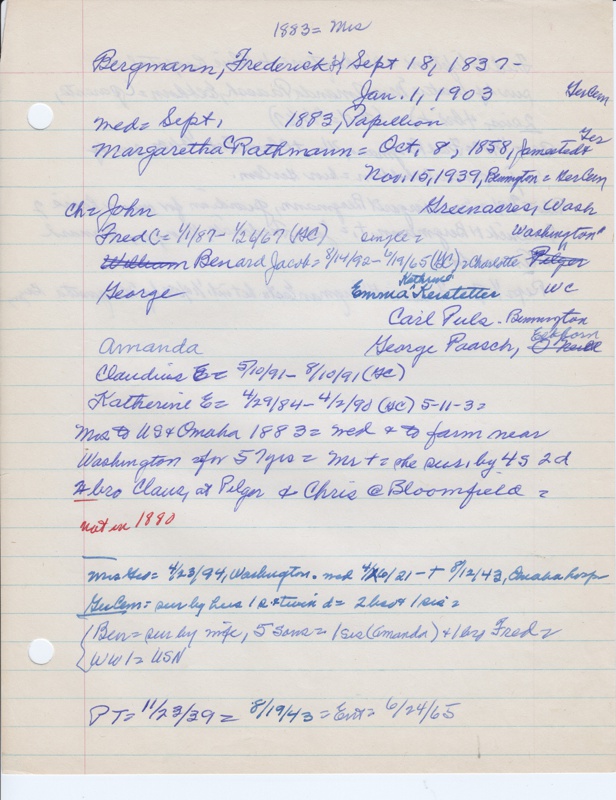 1883 = Mrs
Bergmann, Frederick H Sept 18, 1837 -
Jan. 1, 1903 GerCem
med = Sept, 1883, Papillion
Margaretha C Rathmann = Oct, 8, 1858, Ger
Nov. 15, 1939, Benngton = GerCem
ch = John Greenacres, Wash
Fred C = 4/1/87 - 1/26/67 (GC) single = Washington"
William Benard Jacob = 8/14/92 - 6/19/65 (GC) = Charlotte Pilger
George Emma Kathrine Kerstetter WC
Carl Puls - Bennington
Amanda George Paasch, Elkhorn O'Neill
Claudius E = 5/10/91 - 8/10/91 (GC)
Katherine E = 4/29/84 - 4/2/90 (GC) 5-11-3 =
Mrs to US & Omaha 1883 = wed & to farm near
Washington = for 57 yrs = Mr + = she sur, by 4s 2d
2 bro Claus, at Pilger & Chris @ Bloomfield =
not in 1880
Mrs Geo = 4/23/94, Washington. wed 4/26/21 - + 8/12/43, Omaha hosp
GerCem = sur by hus 1s & twin d = 2 bro & 1 sis =
Ben = sur by wife, 5 sons = 1 sis (Amanda) & 1 bro Fred =
WW1 = USN
PT = 11/23/39 = 8/19/43 = Ent = 6/24/65